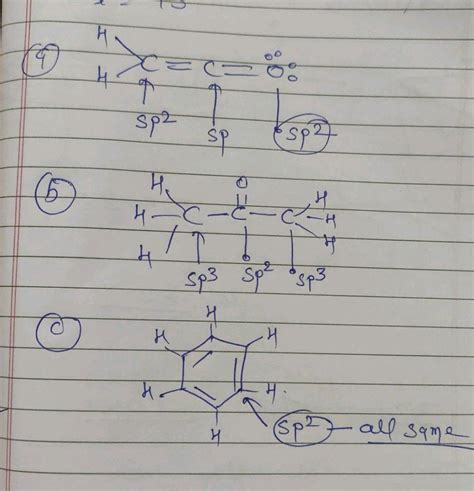 (a) H
H C = C = O
sp2 sp sp2
(b) H O H
H - C - C - C - H
H H
sp3 sp2 sp3
(c) H
H H
H H
H
sp2 - all same